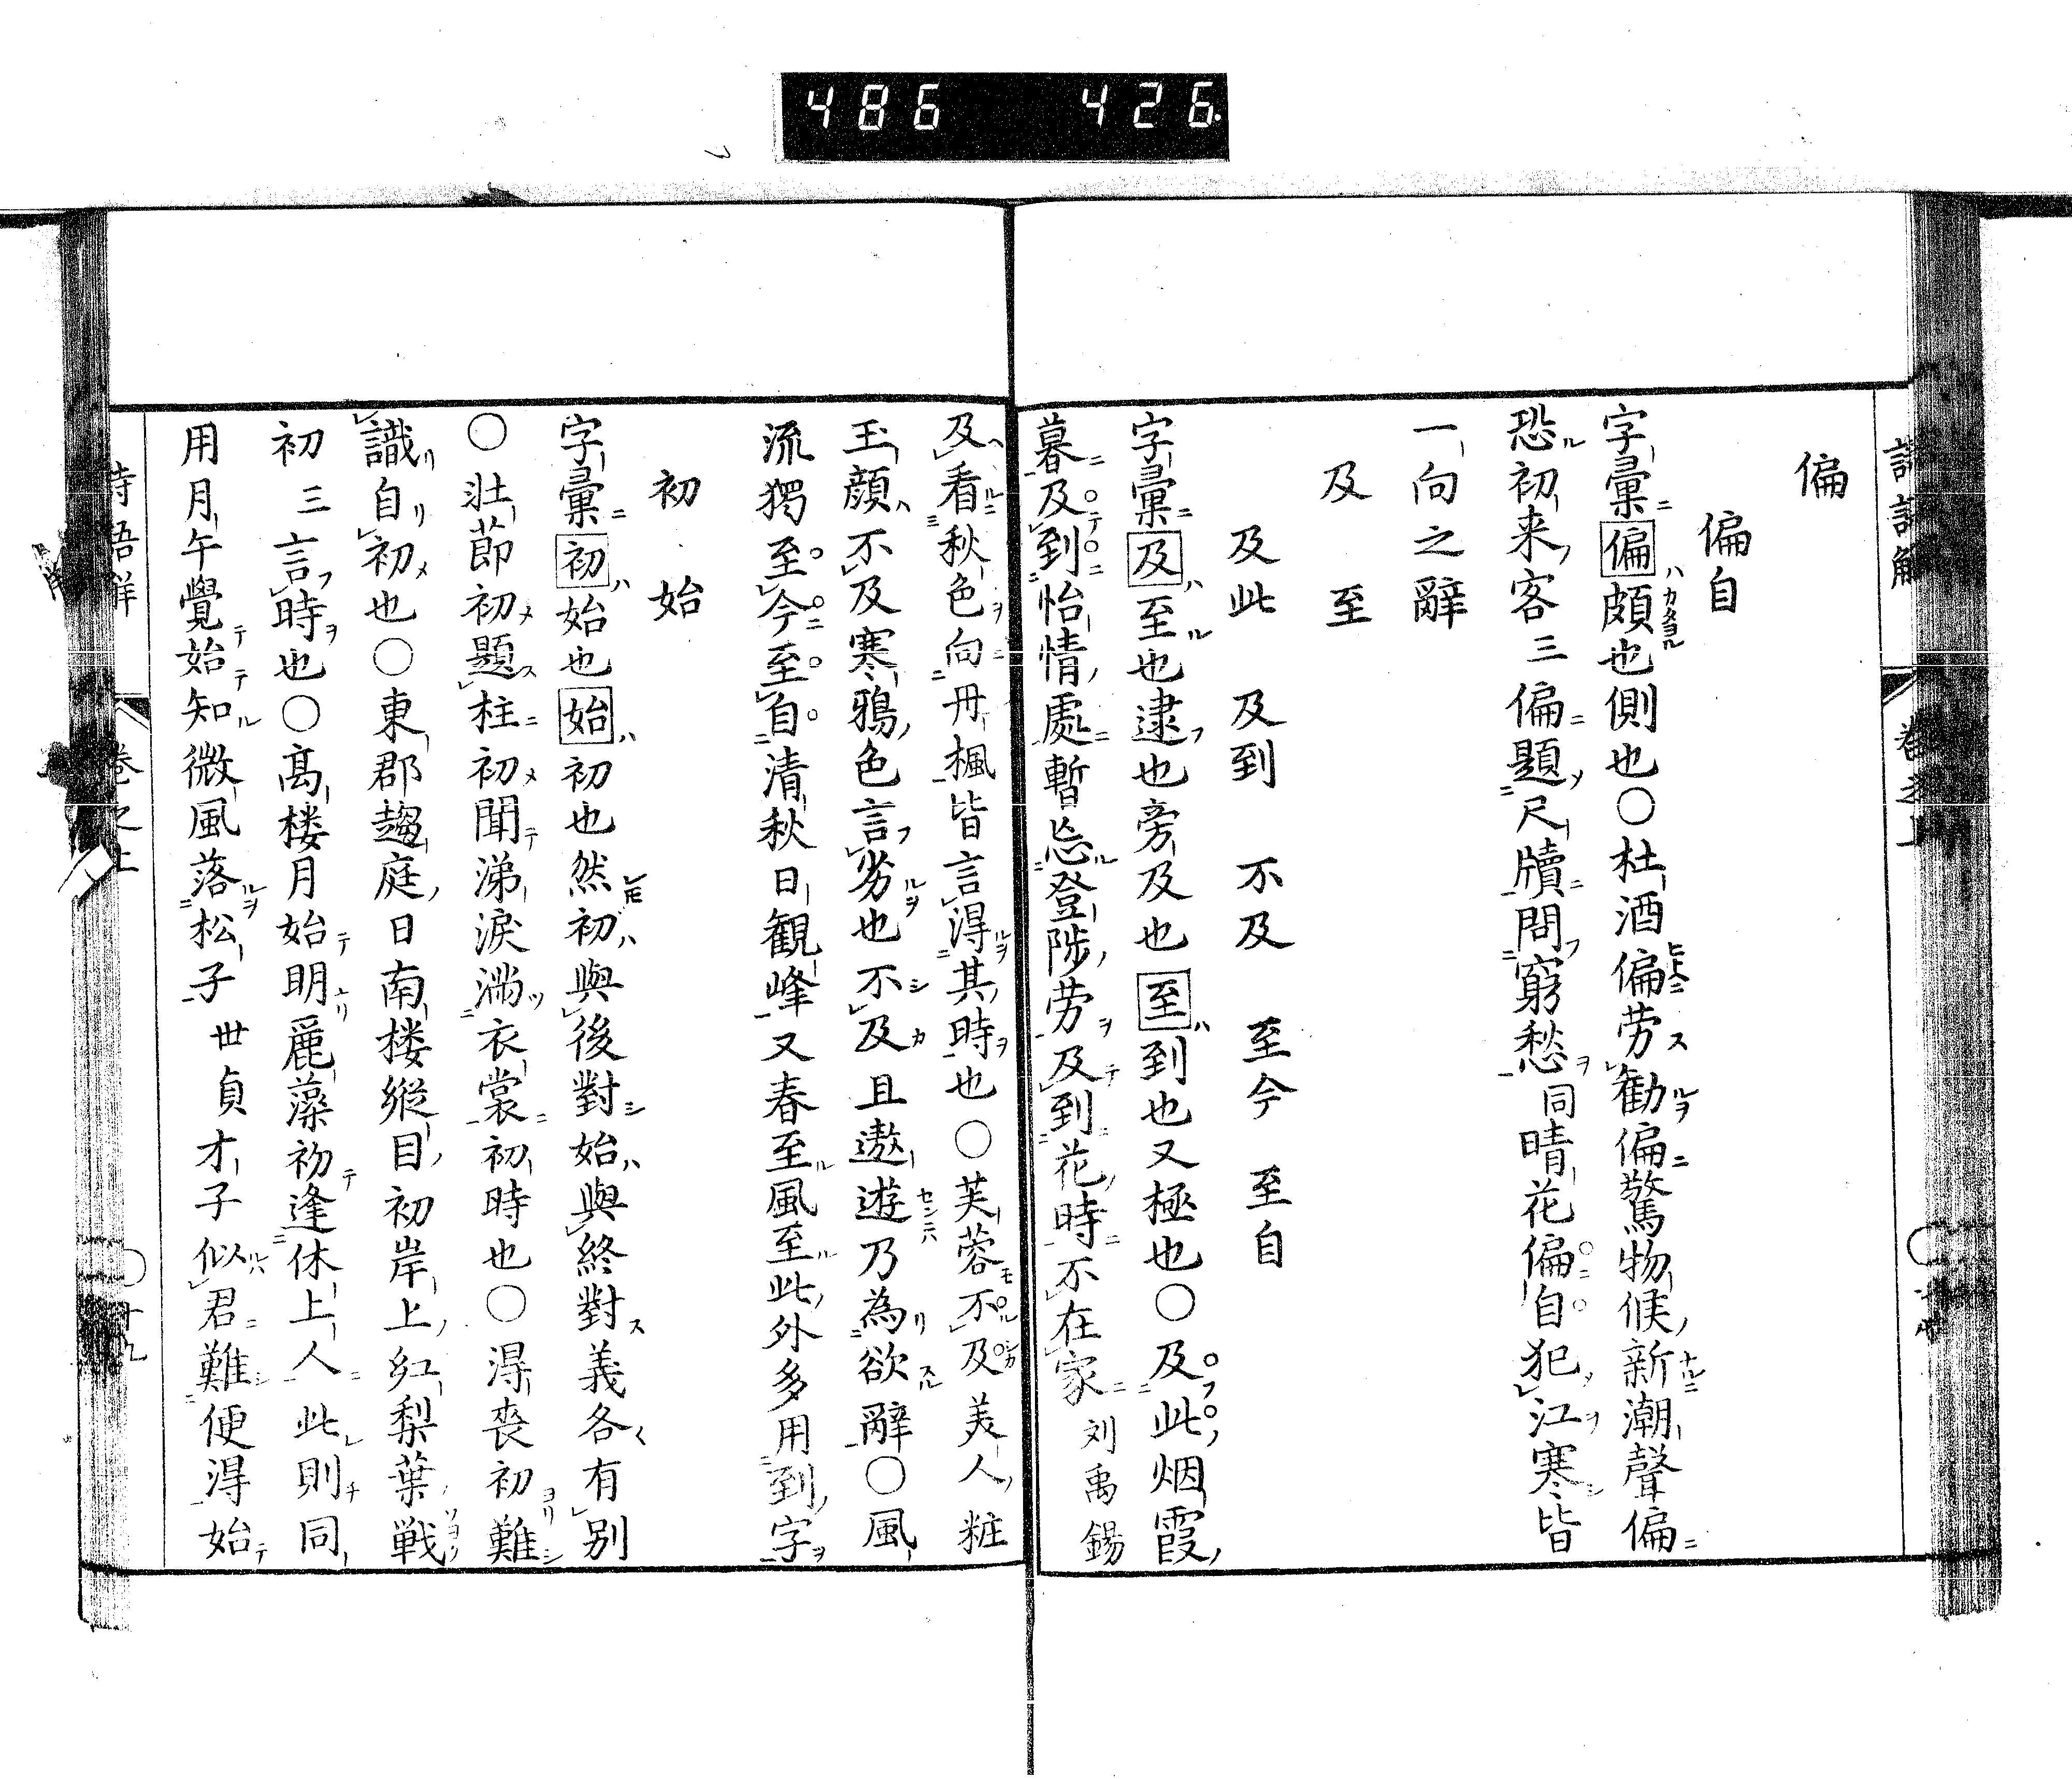 486 426
偏
偏自
字彙ニ偏ハ頗也側也〇杜酒偏労勧偏驚物候新潮聲偏
恐初来客三偏題尺牘問窮愁同晴花偏自犯江寒皆
一向之辭
及至
及此 及到 不及 至今 至自
字彙ニ及ハ至也逮也旁及也至ハ到也又極也〇及此烟霞
暮及到怡情處暫忘登陟労及到花時不在家 刘禹錫
及看秋色向丹楓皆言得其時也〇芙蓉不及美人粧
玉顔不及寒鴉色言劣也不及且遨遊乃為欲辭〇風
流獨至今至自清秋日観峰又春至風至此外多用到字
初始
字彙ニ初ハ始也始ハ初也然初ハ與後對始ハ與終對義各有別
〇壮節初題柱初聞涕涙満衣裳初時也〇得喪初難
識自初也〇東郡趨庭日南楼縦目初岸上紅梨葉戦
初三言時也〇髙楼月始明麗藻初逢休上人此則同
用月午覺始知微風落松子世貞才子似君難便得始
卷之上
十九